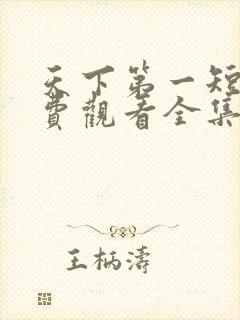 天下第一短
費觀看全集
王柄濤